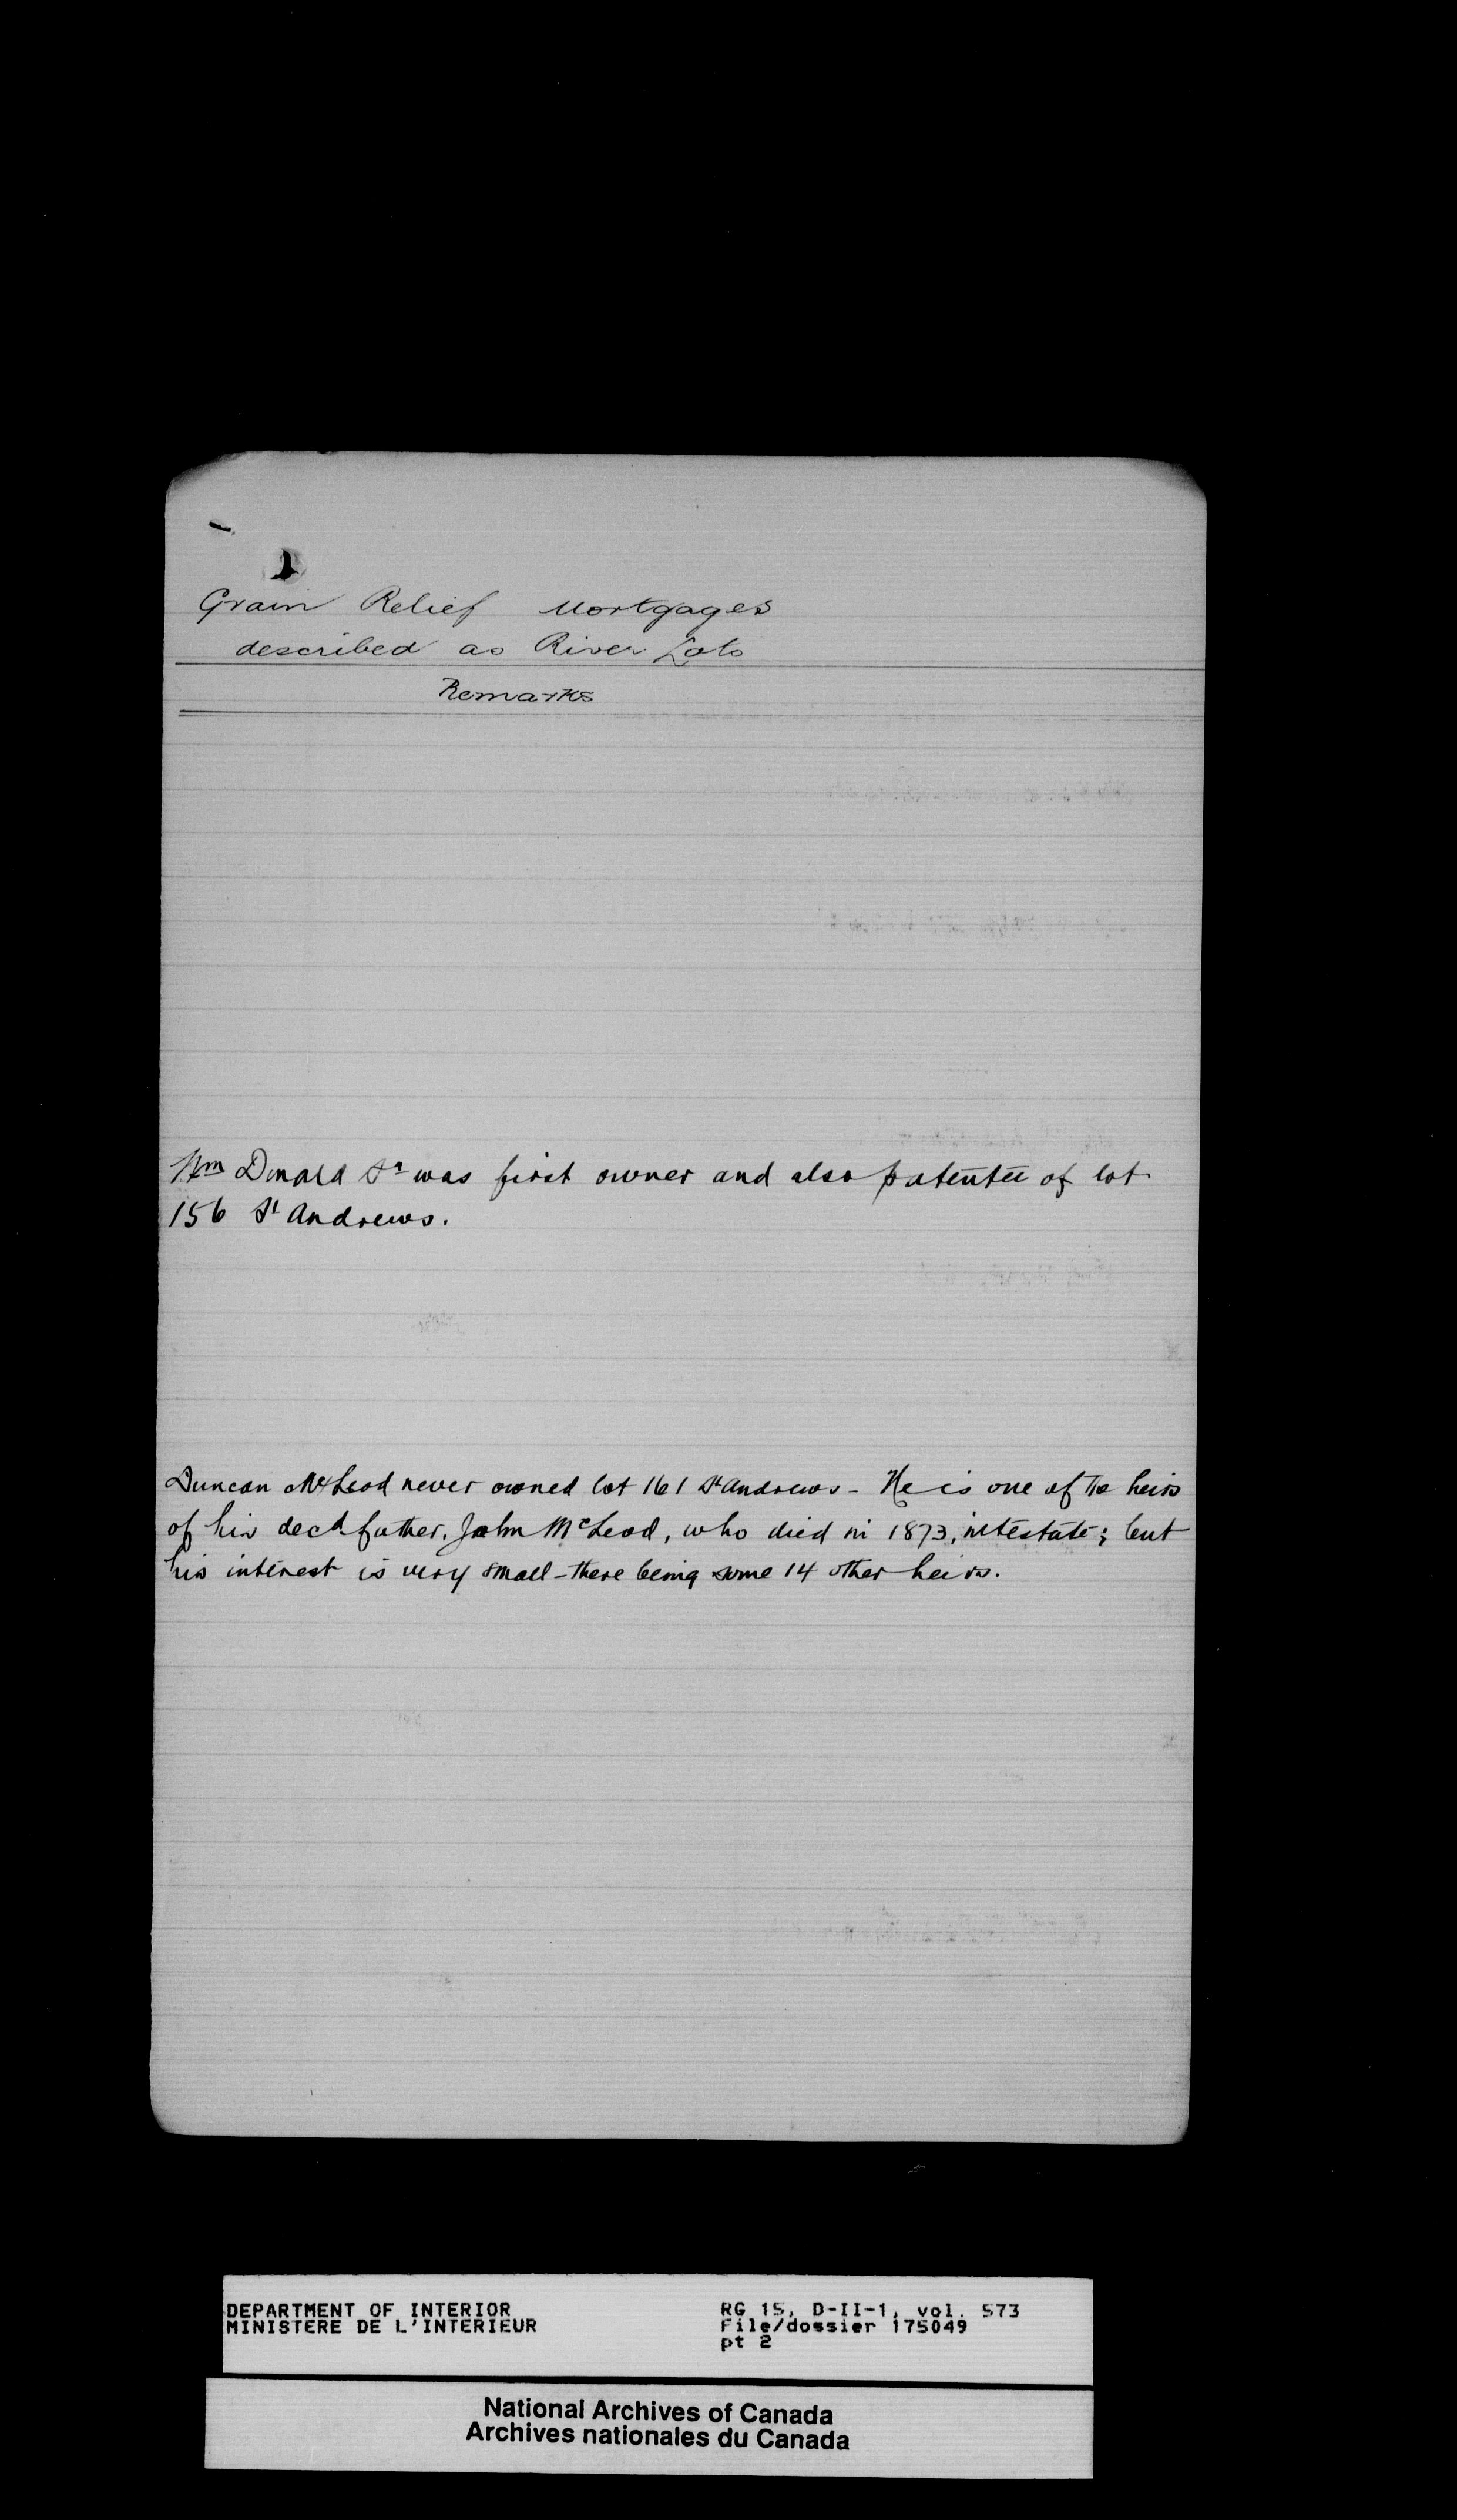 Grain Relief Mortgages
described as River Lots
Remarks
Wm Donald Sr was first owner and also patentee of lot
156 St Andrews.
Duncan McLeod never owned lot 161 St Andrews - He is one of the heirs
of his decd father, John McLeod, who died in 1873, intestate; but
his interest is very small - there being some 14 other heirs.
DEPARTMENT OF INTERIOR
MINISTERE DE L'INTERIEUR
RG 15, D-II-1, vol. 573
File/dossier 175049
pt 2
National Archives of Canada
Archives nationales du Canada